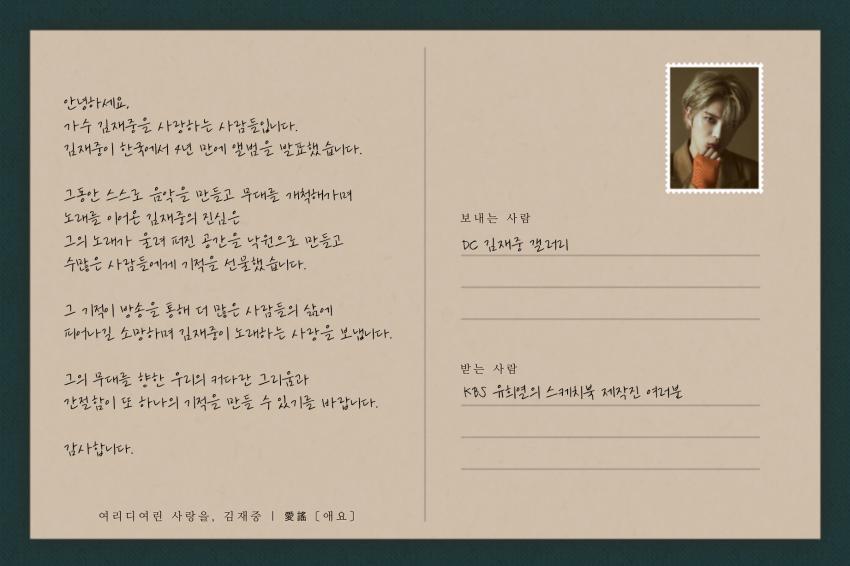 안녕하세요,
가수 김재중을 사랑하는 사람들입니다.
김재중이 한국에서 4년 만에 앨범을 발표했습니다.
그동안 스스로 음악을 만들고 무대를 개척해가며
노래를 이어온 김재중의 진심은
그의 노래가 울려 퍼진 공간을 낙원으로 만들고
수많은 사람들에게 기적을 선물했습니다.
그 기적이 방송을 통해 더 많은 사람들의 삶에
피어나길 소망하며 김재중이 노래하는 사랑을 보냅니다.
그의 무대를 향한 우리의 커다란 그리움과
간절함이 또 하나의 기적을 만들 수 있기를 바랍니다.
감사합니다.
여리디여린 사랑을, 김재중 | 愛謠 [애요]
보내는 사람
DC 김재중 갤러리
받는 사람
KBS 유희열의 스케치북 제작진 여러분